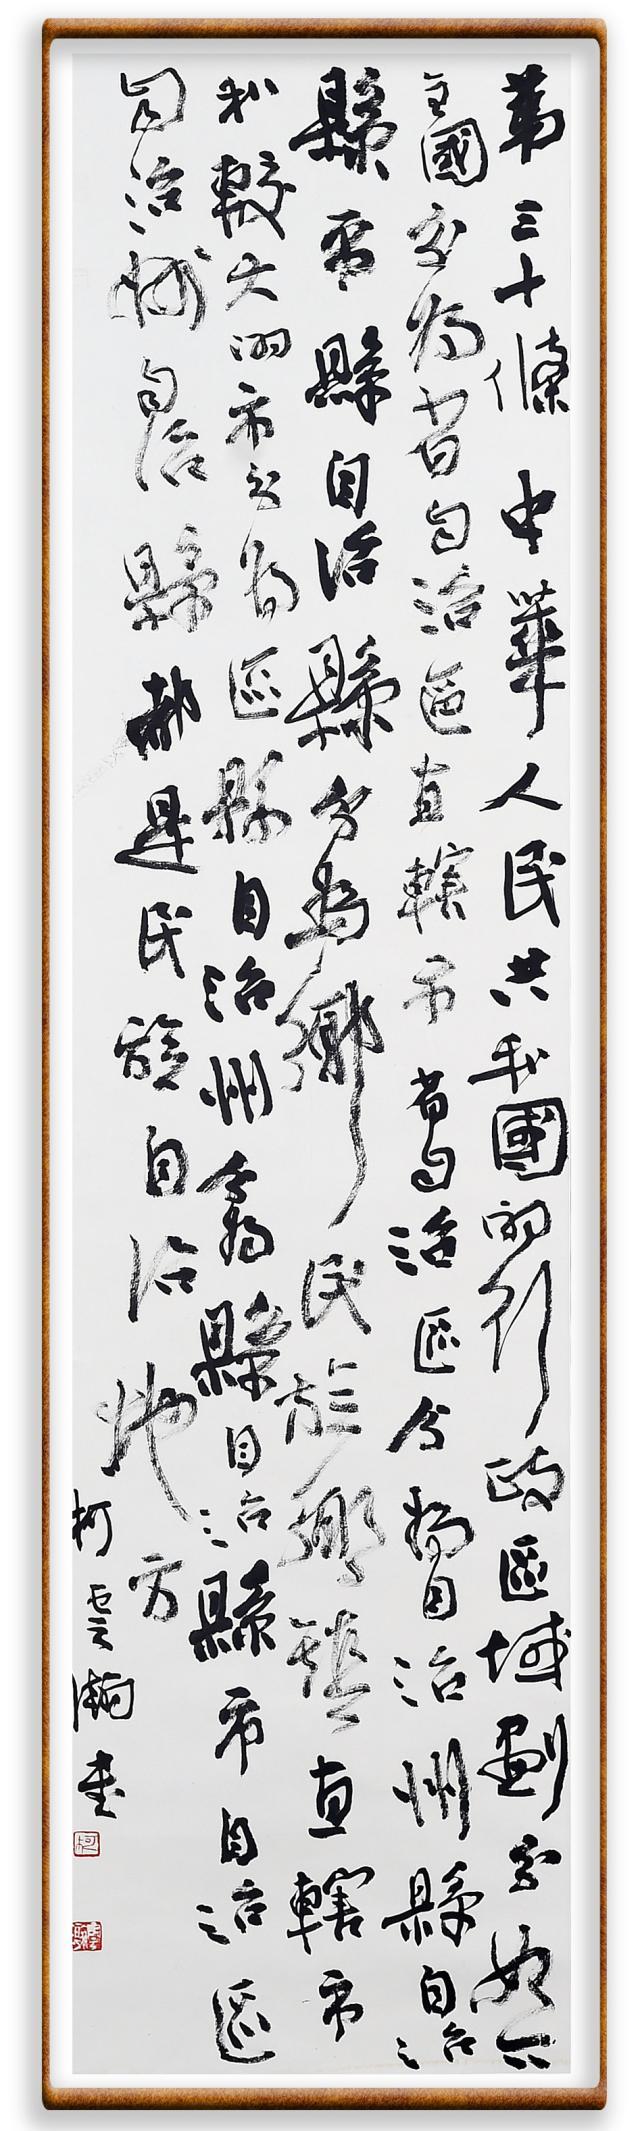 第三十條中華人民共和國的行政區域劃分如下
全國分為省自治區直轄市省自治區分為自治州縣自治
縣市縣自治縣分為鄉民族鄉鎮直轄市
和較大的市分為區縣自治州分為縣自治縣市自治區
自治州自治縣都是民族自治地方
柯雲瀚書
柯